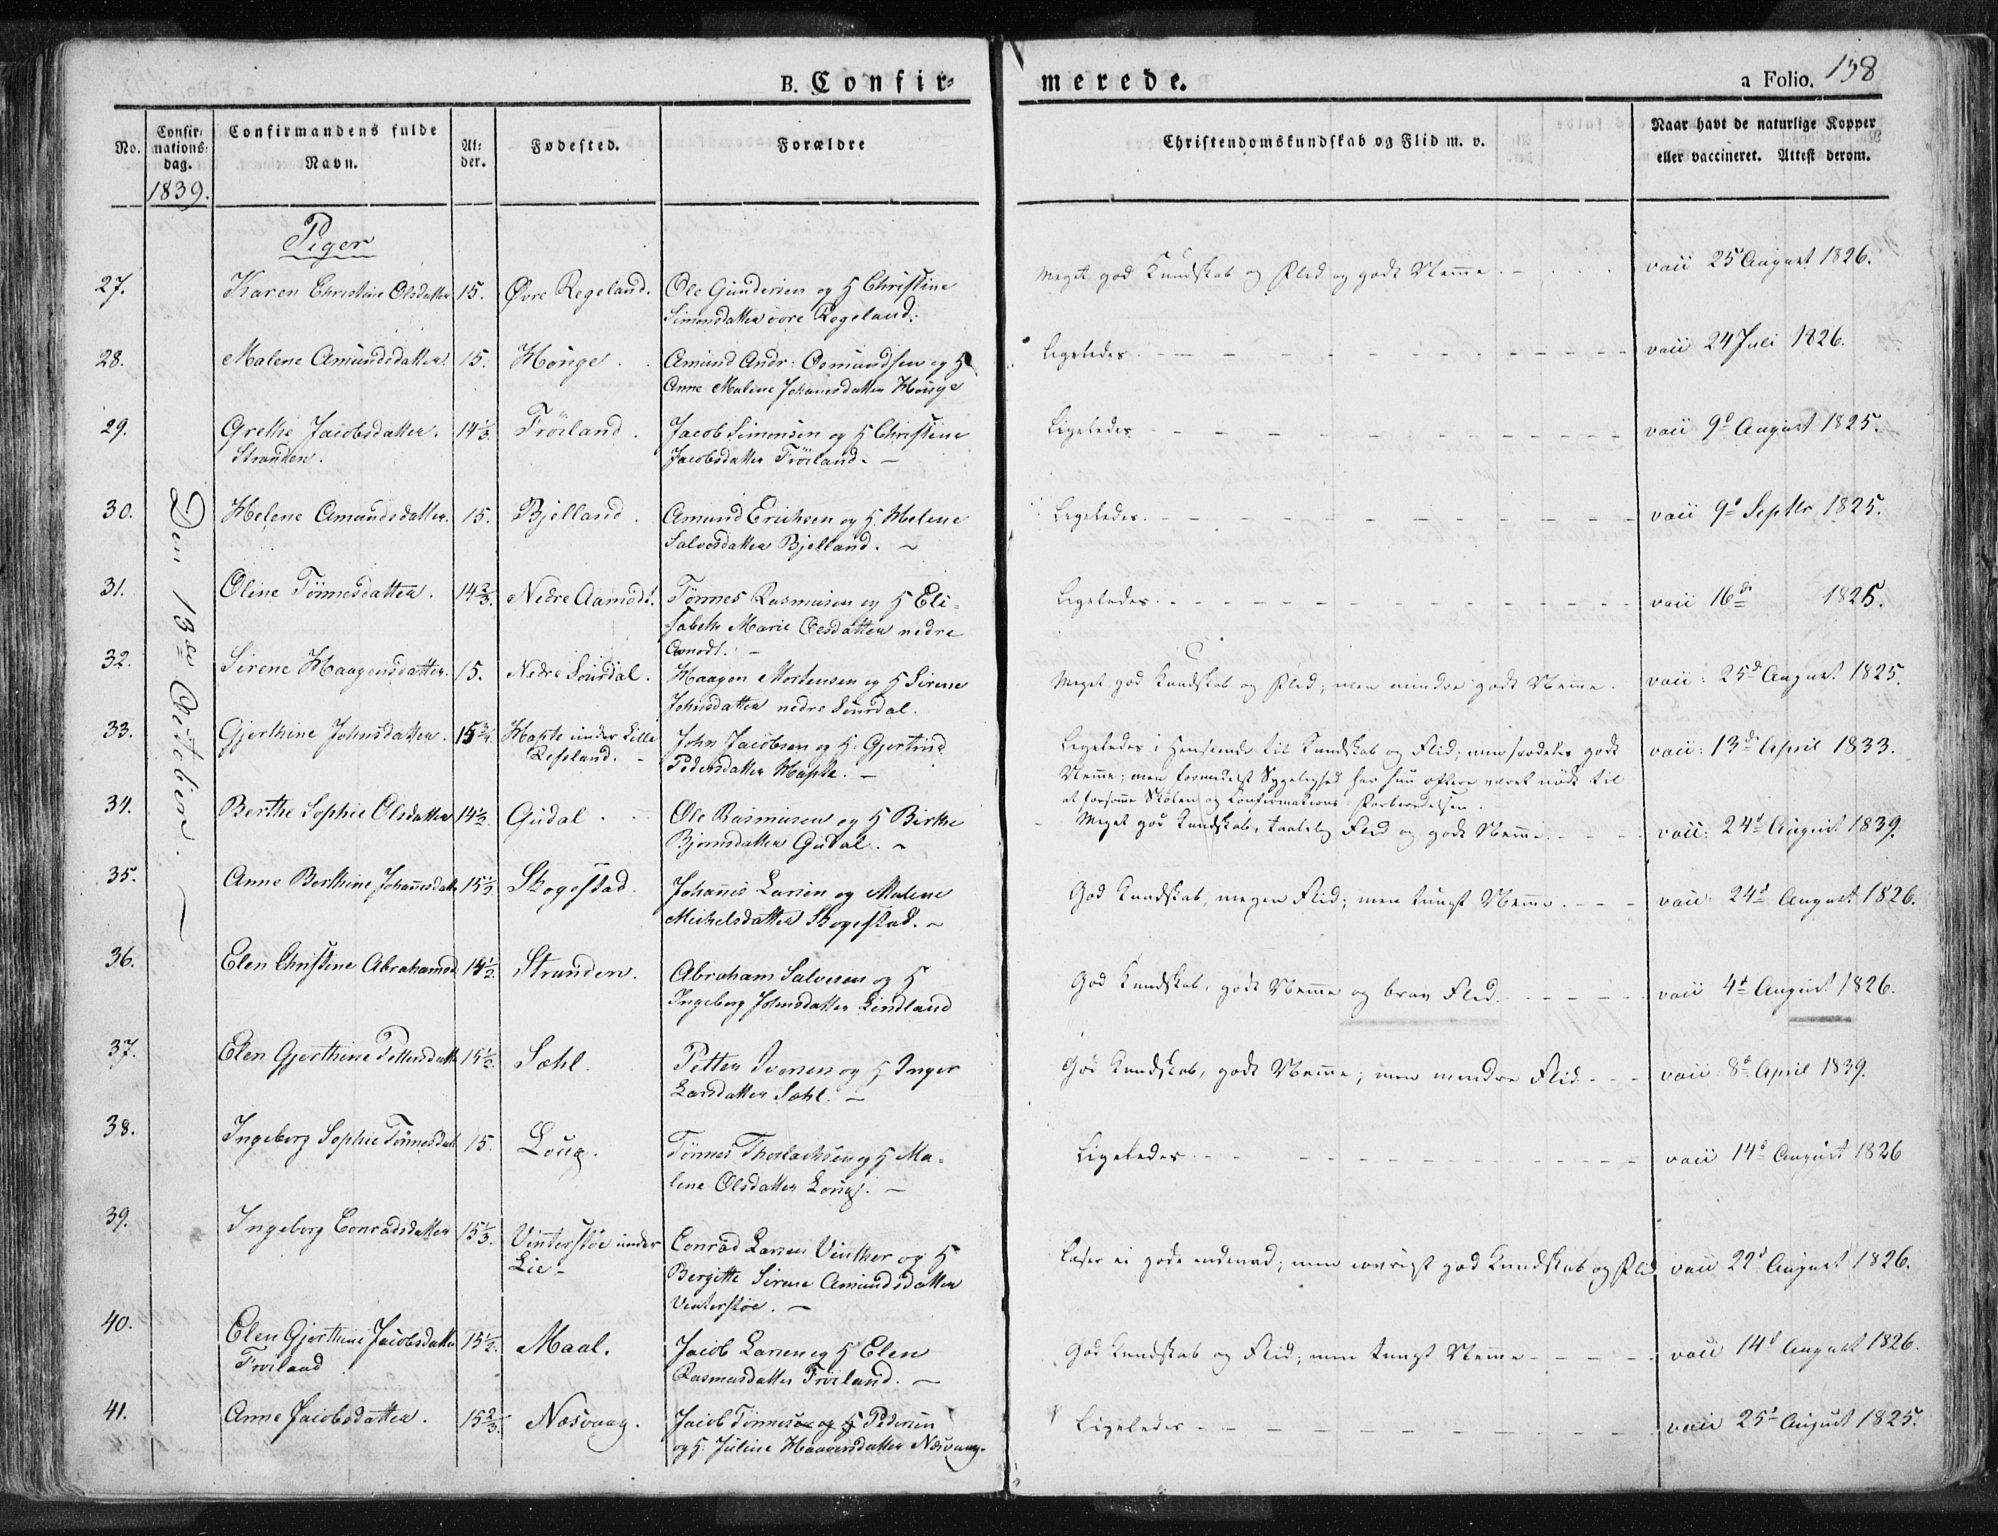 B. Confir-
merede.
a Folio. 158
No.
Confir-
mations-
dag.
1839.
Confirmandens fulde
Navn.
Al-
der.
Fødested.
Forældre
Christendomskundskab og Flid m. v.
Naar havt de naturlige Kopper
eller vaccineret. Attest derom.
Piger
Den 13de October.
27. Karen Christine Olsdatter 15. Øvre Regeland. Ole Gundersen og H Christine
Simonsdatter övre Regeland.
Meget god Kundskab og Flid og godt Nemme. vacc 25 August 1826.
28. Malene Amundsdatter. 15. Houge. Amund Andr: Osmundsen og H
Anne Malene Johannesdatter Houge
Ligeledes. vacc 24 Juli 1826.
29. Grethe Jacobsdatter. 14 1/3. Fröiland. Jacob Simonsen og H Christine
Stranden. Jacobsdatter Fröiland.
Ligeledes vacc 9d August 1825.
30. Helene Amundsdatter. 15. Bjelland. Amund Erichsen og H. Helene
Salvesdatter Bjelland.
Ligeledes. vacc 9d Septbr 1825.
31. Oline Tönnesdatter. 14 2/3. Nedre Aamodt. Tönnes Rasmusen og H Eli-
sabeth Marie Olesdatter nedre
Aamodt.
Ligeledes. vacc 16de 1825.
32. Sirene Haagensdatter. 15. Nedre Sourdal. Haagen Mortensen og H Sirene
Johnsdatter nedre Sourdal.
Meget god Kundskab og Flid; men mindre godt Nemme. vacc: 25d August 1825.
33. Gjerthine Johnsdatter. 15 3/4. Hapte under Lille John Jacobsen og H. Gjertine
Refsland. Pedersdatter Hapte.
Ligeledes i Henseende til Kundskab og Flid; men særdeles godt vacc: 13de April 1833.
Nemme; men formedelst Sygelighed har hun oftere været nödt til
at forsömme Skolen og Confirmations Forberedelsen.
34. Berthe Sophie Olsdatter 14 1/2. Gudal. Ole Rasmusen og H Birthe
Bjornsdatter Gudal.
Meget god Kundskab, taalelig Flid og godt Nemme. vacc: 24d August 1839.
35. Anne Berthine Johannesdatt 15 1/2. Skogestad. Johannes Larsen og Malene
Michelsdatter Skogestad.
God Kundskab, megen Flid; men tungt Nemme. vacc: 24d August 1826.
36. Elen Christine Abrahamsd 14 1/2. Stranden. Abraham Salvesen og H
Ingeborg Johnsdatter Lindland
God Kundskab, godt Nemme og brav Flid. vacc 4d August 1826.
37. Elen Gjerthine Pettersdatt 15 1/2. Sæhl. Petter Iversen og H Inger
Larsdatter Sæhl.
God Kundskab, godt Nemme; men mindre Flid. vacc 8d April 1839.
38. Ingeborg Sophie Tönnesdatt 15. Loug. Tönnes Thorlachsen og H Ma-
lene Olsdatter Loug.
Ligeledes vacc 14d August 1826
39. Ingeborg Conradsdatter 15 1/3. Vinterstöe under Conrad Larsen Vintker og H
Lie Bergitte Sirene Amundsdatter
Vinterstöe.
Læser ei gode udenad; men iövrigt god Kundskab og Flid vacc 22d August 1826.
40. Elen Gjerthine Jacobsdatter 15 1/2. Maal. Jacob Larsen og H Elen
Fröiland Rasmusdatter Fröiland.
God Kundskab og Flid; men tungt Nemme vacc 14d August 1826.
41. Anne Jacobsdatter. 15 2/3. Næsvaag. Jacob Tönnes Pedersen
og H. Juline Haavorsdatter Næsvaag.
Ligeledes vacc 25d August 1825.